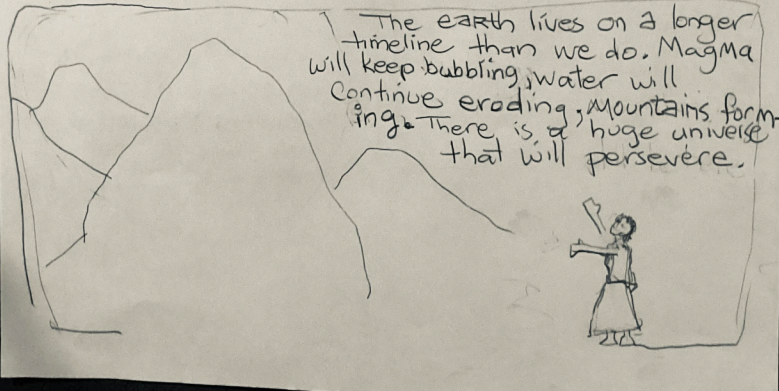 The earth lives on a longer
timeline than we do. Magma
will keep bubbling, water will
continue eroding, mountains form-
ing. There is a huge universe
that will persevere.